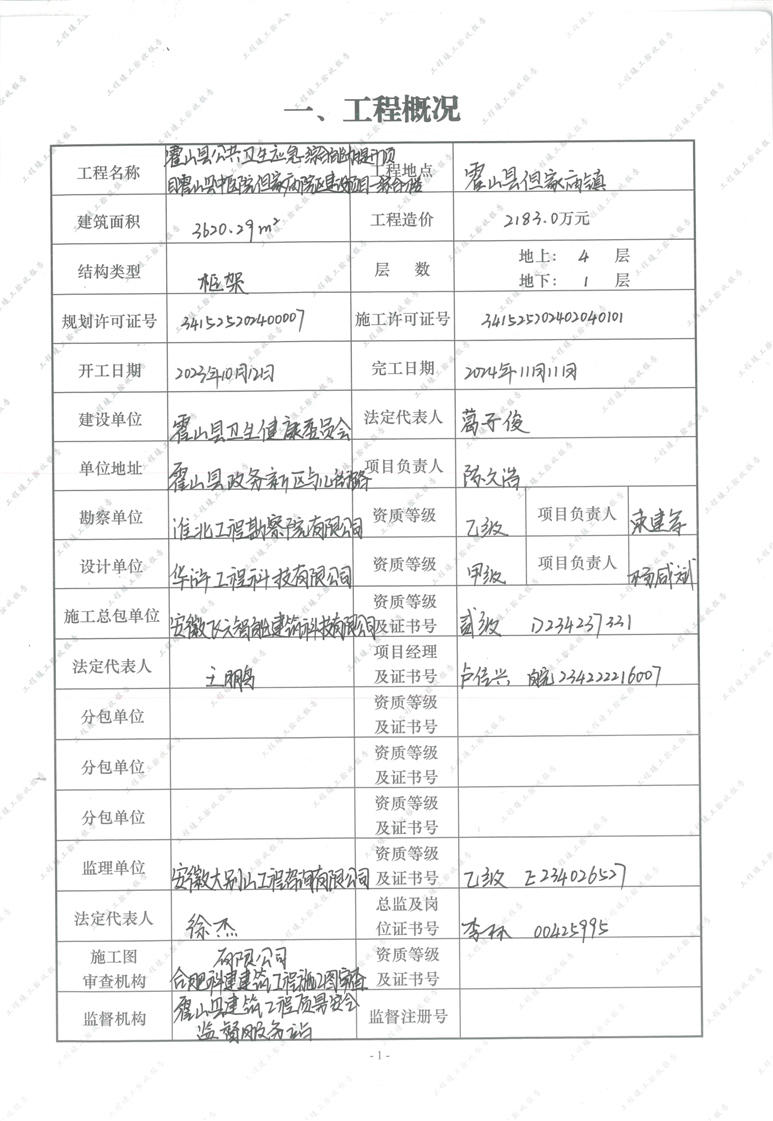 一、工程概况
工程名称 霍山县公共卫生应急综合能力提升项 工程地点 霍山县但家庙镇
目霍山县中医院但家庙院区建设项目-综合楼
建筑面积 3620.29m² 工程造价 2183.0万元
结构类型 框架 层 数 地上: 4 层
地下: 1 层
规划许可证号 341525202400007 施工许可证号 341525202402040101
开工日期 2023年10月12日 完工日期 2024年11月11日
建设单位 霍山县卫生健康委员会 法定代表人 葛子俊
单位地址 霍山县政务新区与 项目负责人 陈文浩
勘察单位 淮北工程勘察院有限公司 资质等级 乙级 项目负责人 建军
设计单位 华浒工程科技有限公司 资质等级 甲级 项目负责人 杨成斌
施工总包单位 安徽飞元智能建筑科技有限公司 资质等级
及证书号 贰级 D234237331
法定代表人 王鹏 项目经理
及证书号 卢佳兴 皖234222216007
分包单位 资质等级
及证书号
分包单位 资质等级
及证书号
分包单位 资质等级
及证书号
监理单位 安徽大别山工程咨询有限公司 资质等级
及证书号 乙级 E234026527
法定代表人 徐杰 总监及岗
位证书号 李林 00425995
施工图 有限公司 资质等级
审查机构 合肥科建建筑工程施工图审查 及证书号
监督机构 霍山县建筑工程质量安全 监督注册号
监督服务站
- 1 -